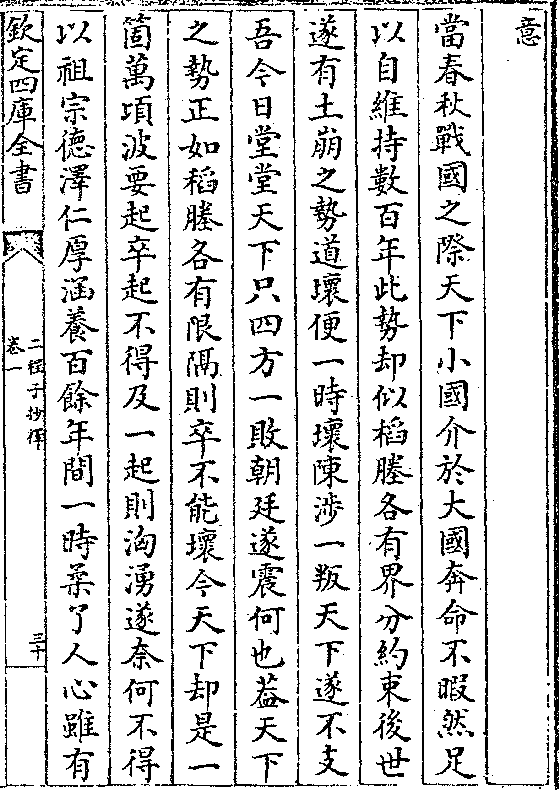 意
當春秋戰國之際天下小國介於大國奔命不暇然足
以自維持數百年此勢却似稻塍各有界分約束後世
遂有土崩之勢道壞便一時壞陳涉一叛天下遂不支
吾今日堂堂天下只四方一敗朝廷遂震何也葢天下
之勢正如稻塍各有限隔則卒不能壞今天下却是一
箇萬頃波要起卒起不得及一起則洶湧遂奈何不得
以祖宗德澤仁厚涵養百餘年間一時柔了人心雖有
欽定四庫全書
二程子抄釋
卷一
三十